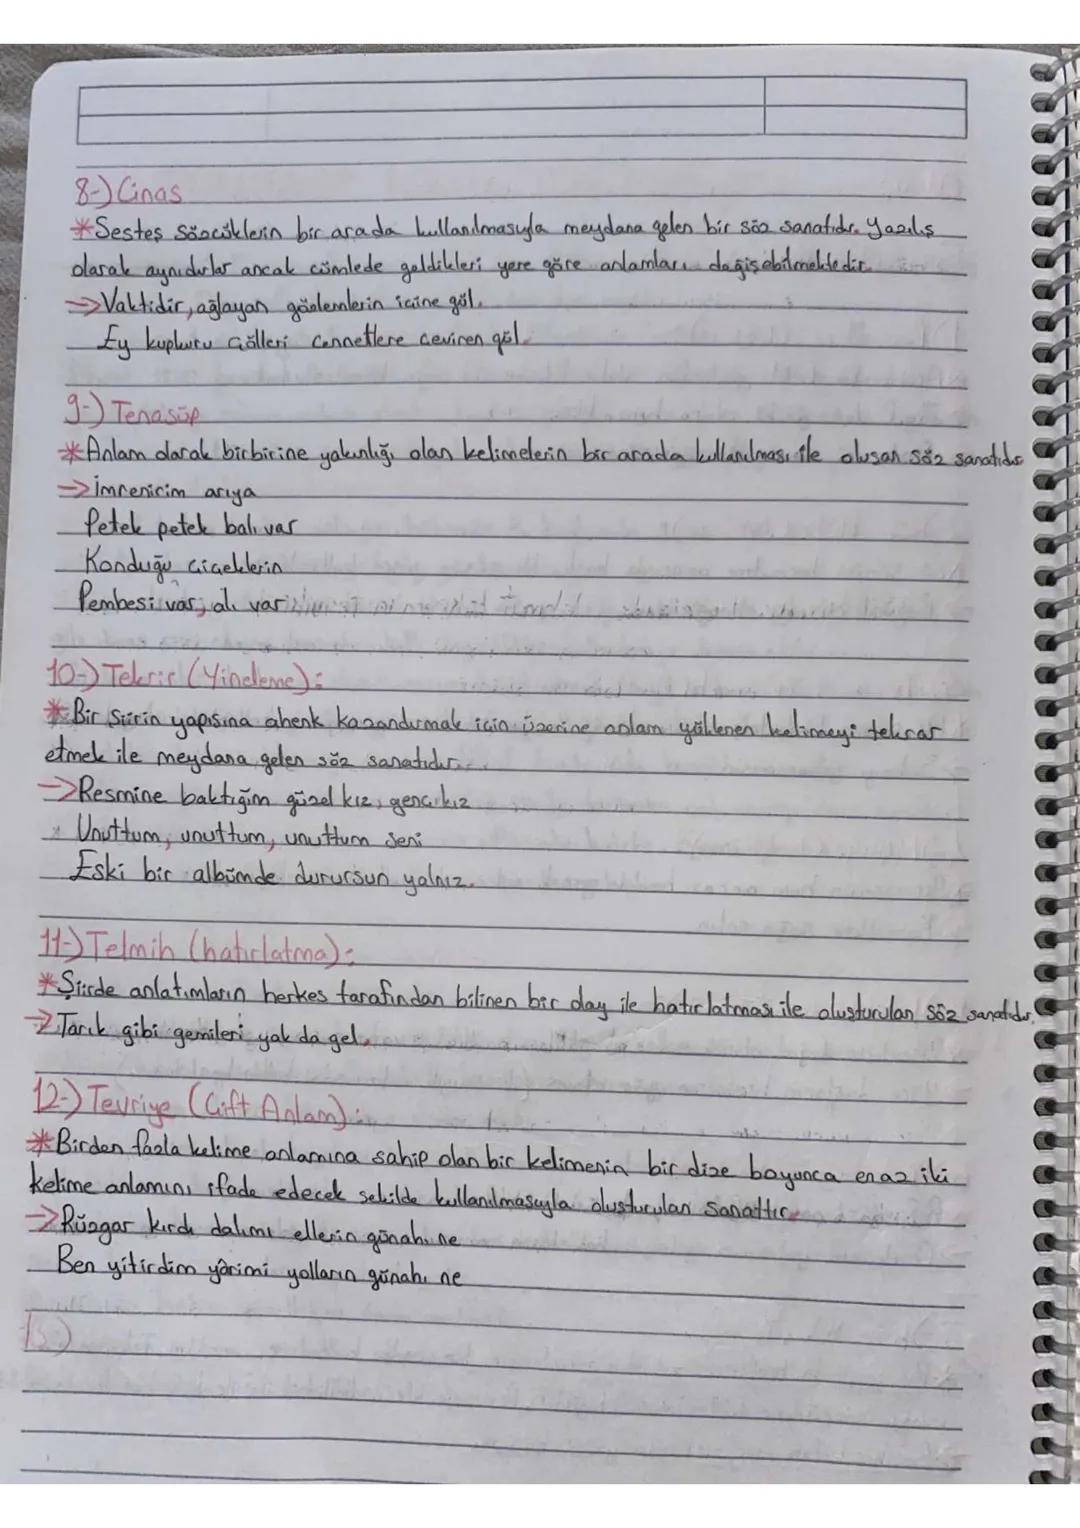 8-) Cinas
*Sesteş sözcüklerin bir arada kullanılmasıyla meydana gelen bir söz sanatıdır. Yazılış
olarak aynıdırlar ancak cümlede geldikleri yere göre anlamları değişebilmektedir.
→Vaktidir, ağlayan gözlemlerin içine göl.
Ey kupkuru çölleri cennetlere çeviren göl.
9-) Tenasüp
*Anlam olarak birbirine yakınlığı olan kelimelerin bir arada kullanılması ile oluşan söz sanatıdır
→İmrenirim arıya
Petek petek balı var
Konduğu çiçeklerin
Pembesi var, alı var
10-) Tekrir (Yineleme):
*Bir şiirin yapısına ahenk kazandırmak için üzerine anlam yüklenen kelimeyi tekrar
etmek ile meydana gelen söz sanatıdır.
→Resmine baktığım güzel kız, genç kız
Unuttum, unuttum, unuttum seni
Eski bir albümde durursun yalnız.
11-) Telmih (hatırlatma):
*Şiirde anlatımların herkes tarafından bilinen bir olay ile hatırlatması ile oluşturulan söz sanatıdır.
→Tarık gibi gemileri yak da gel.
12-) Tevriye (Çift Anlam):
*Birden fazla kelime anlamına sahip olan bir kelimenin bir dize boyunca en az iki
kelime anlamını ifade edecek şekilde kullanılmasıyla oluşturulan sanattır.
→Rüzgar kırdı dalımı ellerin günahı ne
Ben yitirdim yârimi yolların günahı ne
13-)